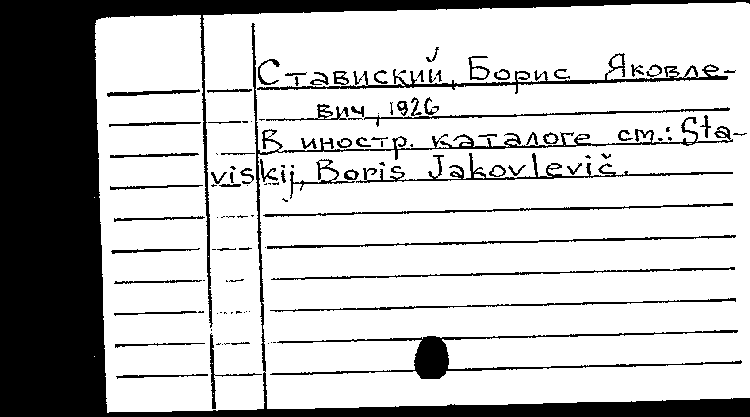 Ставиский, Борис Яковле-
вич, 1926
В иностр. каталоге см.: Sta-
viskij, Boris Jakovlevič.